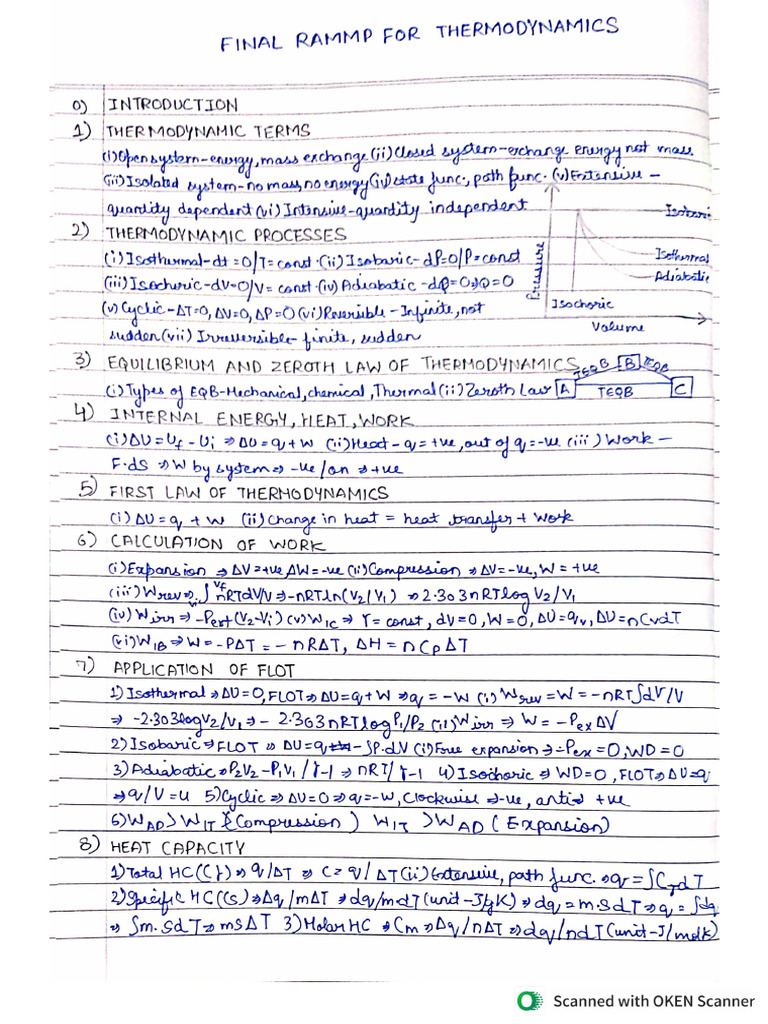 FINAL RAMMP FOR THERMODYNAMICS
0) INTRODUCTION
1) THERMODYNAMIC TERMS
(i) Open system-energy, mass exchange (ii) Closed system-exchange energy not mass
(iii) Isolated system-no mass, no energy (iv) state func, path func. (v) Extensive -
quantity dependent (vi) Intensive-quantity independent
2) THERMODYNAMIC PROCESSES
(i) Isothermal-dt=0/T=const. (ii) Isobaric-dP=0/P=const
(iii) Isochoric-dV=0/V=const. (iv) Adiabatic-dQ=0, Q=0
(v) Cyclic-ΔT=0, ΔV=0, ΔP=0 (vi) Reversible-Infinite, not
sudden (vii) Irreversible-finite, sudden
Pressure
Isobaric
Isothermal
Adiabatic
Isochoric
Volume
3) EQUILIBRIUM AND ZEROTH LAW OF THERMODYNAMICS
(i) Types of EQB-Mechanical, chemical, Thermal (ii) Zeroth Law
A TEQB B TEQB C
TEQB
4) INTERNAL ENERGY, HEAT, WORK
(i) ΔU=Uf-Ui ⇒ ΔU=q+W (ii) Heat-q=+ve, out of q=-ve (iii) Work-
F.dS ⇒ W by system ⇒ -ve/on ⇒ +ve
5) FIRST LAW OF THERMODYNAMICS
(i) ΔU = q + W (ii) Change in heat = heat transfer + Work
6) CALCULATION OF WORK
(i) Expansion ⇒ ΔV=+ve ΔW=-ve (ii) Compression ⇒ ΔV=-ve, W=+ve
(iii) Wrev ⇒ ∫vi^vf nRTdV/V ⇒ -nRTln(V2/V1) ⇒ 2.303nRTlog V2/V1
(iv) Wirr ⇒ -Pext(V2-Vi) (v) WIC ⇒ r=const, dV=0, W=0, ΔU=qv, ΔU=nCvdT
(vi) WIB ⇒ W=-PΔT=-nRΔT, ΔH=nCpΔT
7) APPLICATION OF FLOT
1) Isothermal ⇒ ΔU=0, FLOT ⇒ ΔU=q+W ⇒ q=-W (i) Wrev=W=-nRT∫dV/V
⇒ -2.303logV2/V1 ⇒ -2.303nRTlogP1/P2 (ii) Wirr ⇒ W=-PexΔV
2) Isobaric ⇒ FLOT ⇒ ΔU=q-∫P.dV (i) Free expansion ⇒ -Pex=0, WD=0
3) Adiabatic ⇒ P2V2-P1V1/r-1 ⇒ nRT/r-1 4) Isochoric ⇒ WD=0, FLOT ⇒ ΔU=q
⇒ q/V=u 5) Cyclic ⇒ ΔU=0 ⇒ q=-W, Clockwise ⇒ -ve, anti ⇒ +ve
6) WAD > WIT (Compression) WIT > WAD (Expansion)
8) HEAT CAPACITY
1) Total HC(CT) ⇒ q/ΔT ⇒ C=q/ΔT (ii) Extensive, path func. ⇒ q=∫CTdT
2) Specific HC(Cs) ⇒ Δq/mΔT ⇒ dq/mdT (unit-J/gK) ⇒ dq=m.SdT ⇒ q=∫dq
⇒ ∫m.SdT ⇒ mSΔT 3) Molar HC ⇒ Cm ⇒ Δq/nΔT ⇒ dq/ndT (unit-J/molK)
Scanned with OKEN Scanner